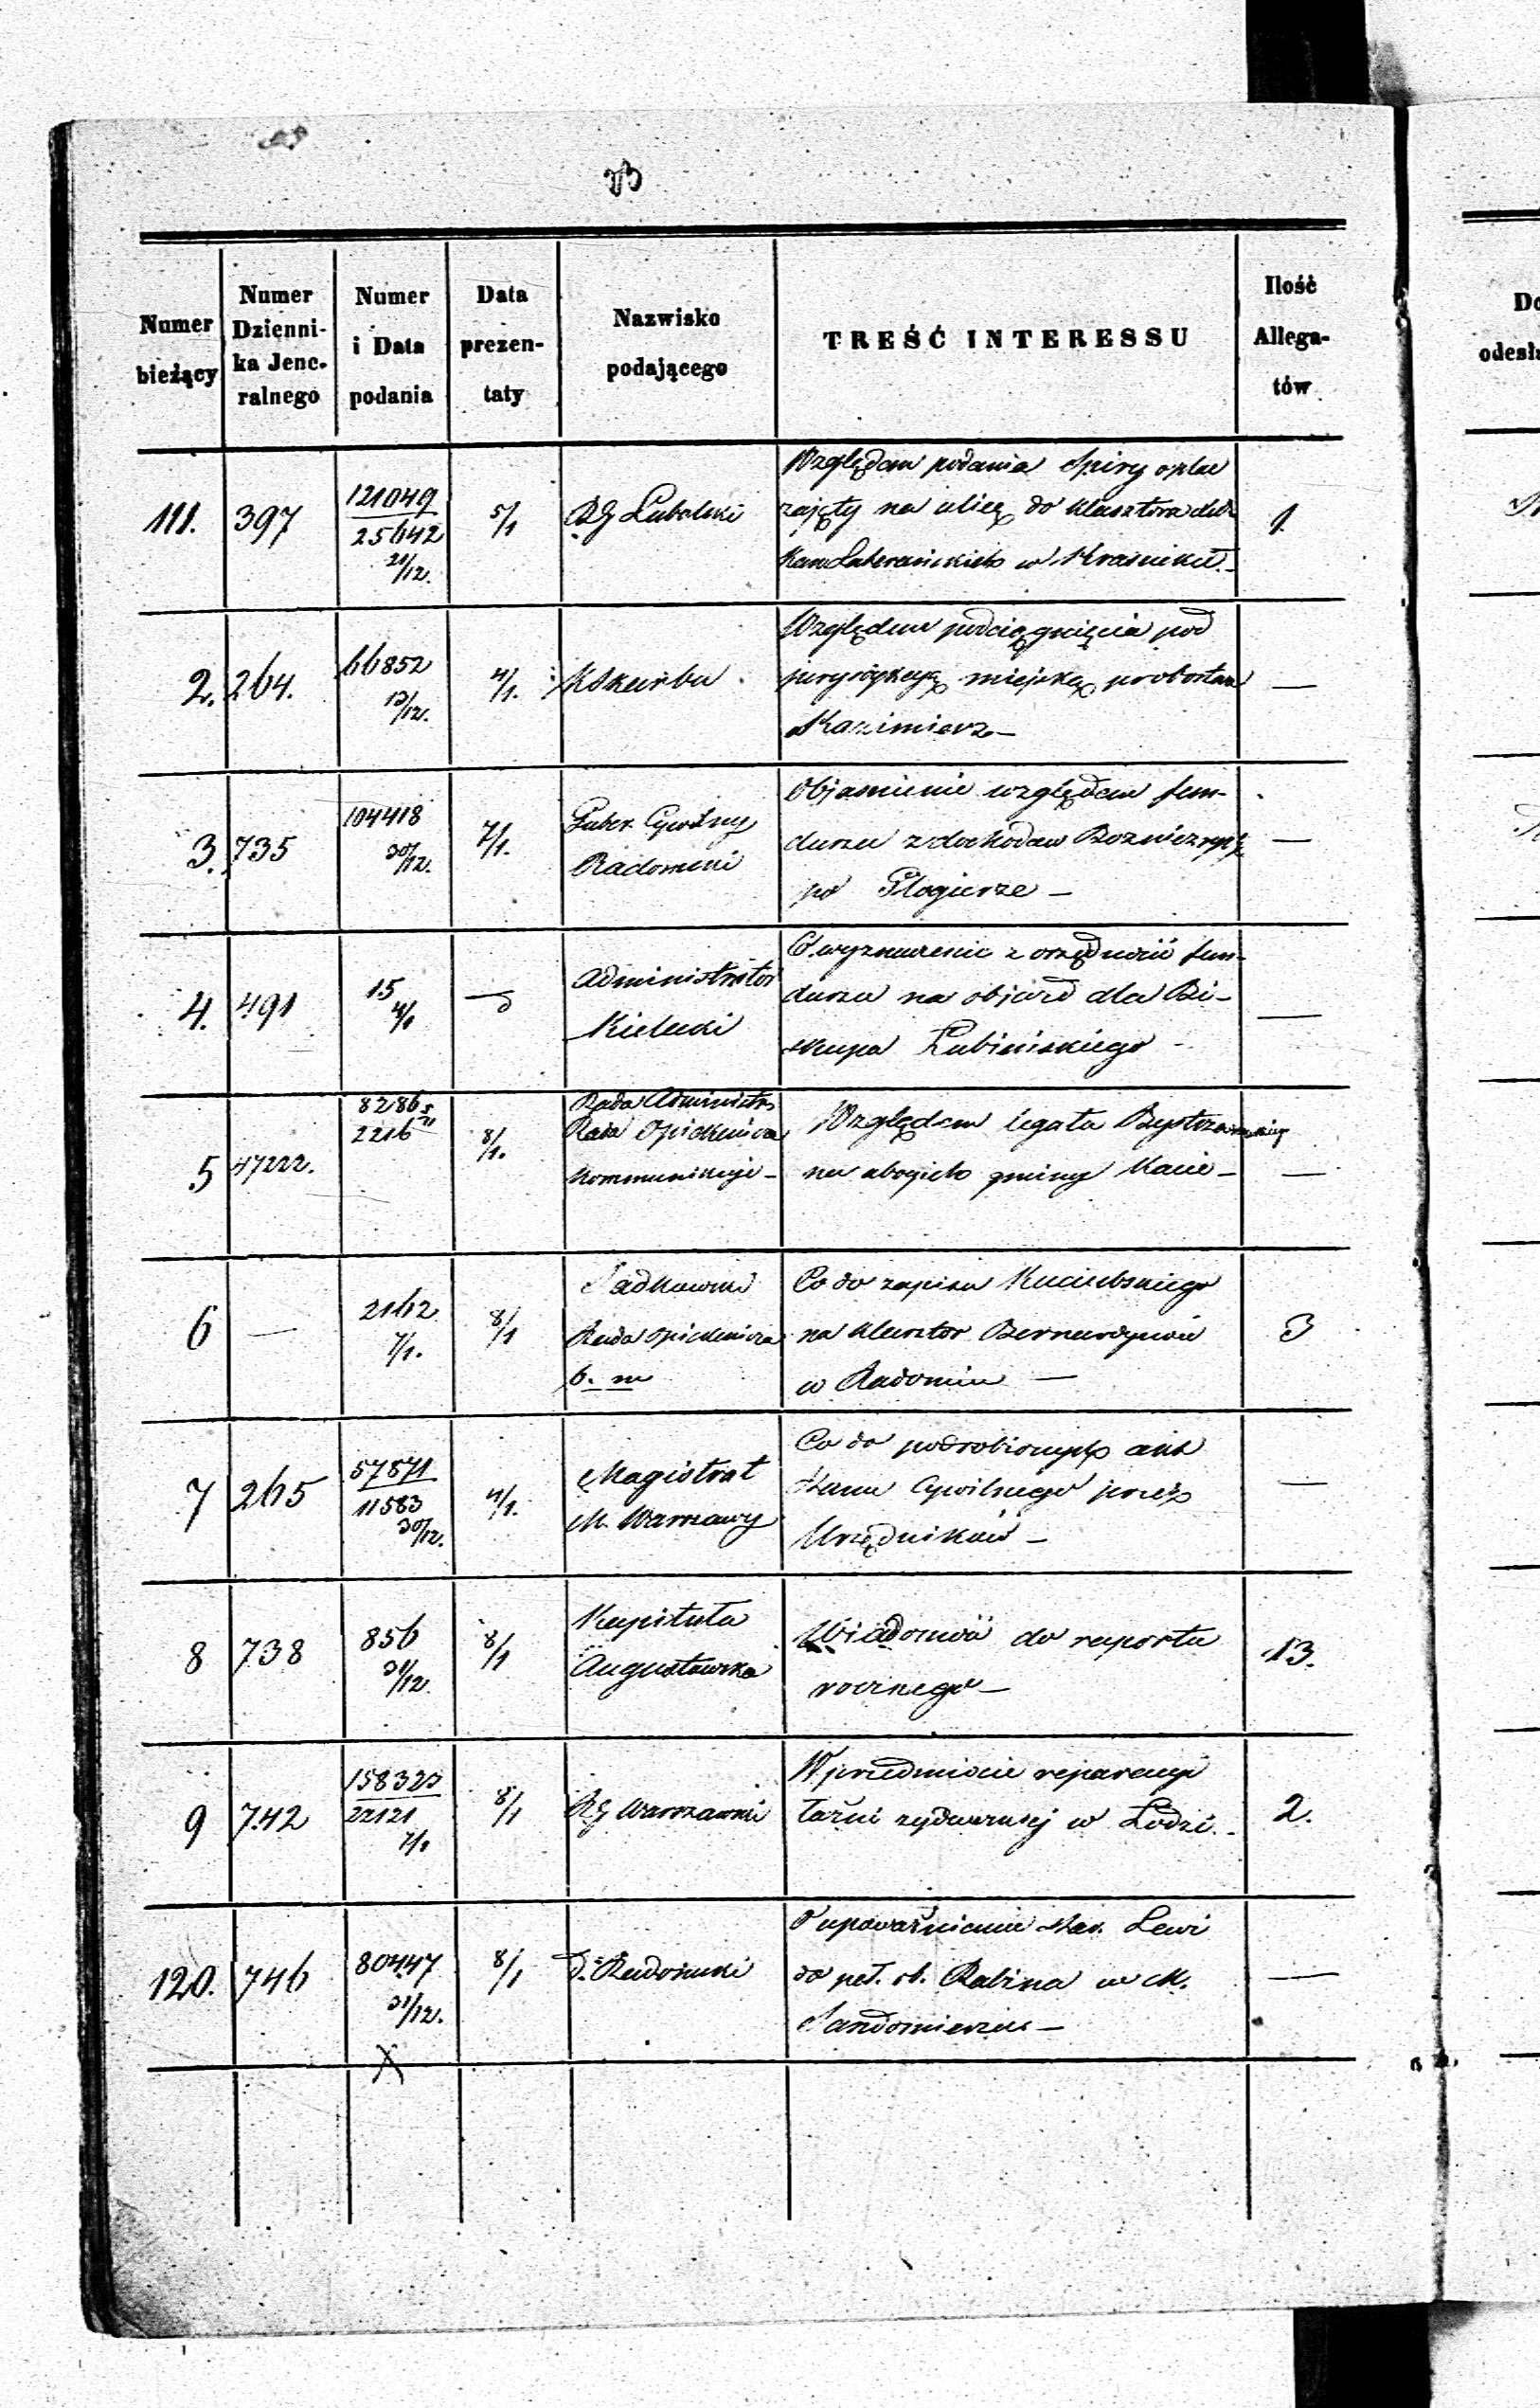 Numer bieżący
Numer Dzienni-ka Jene-ralnego
Numer i Data podania
Data prezen-taty
Nazwisko podającego
TREŚĆ INTERESSU
Ilość Allega-tów
111.
397
121049
25642
21/12.
5/1
RG Lubelski
Względem podania Spiry o plac
zajęty na ulicę do klasztoru
Kan Laterańskich w Kraśniku.
1.
2.
264.
66852
4/1.
KSkarbu
Względem podciągnięcia pod
juryzdykcyą miejską probostwa
Kazimierz —
—
3.
735
104418
30/12.
7/1.
Guber. Cywilny
Radomski
Objaśnienie względem fun-
duszu z dochodów
po Glogierze —
—
4.
491
15
4/1
Administrator
Kielecki
O wyznaczenie z oszczędności fun-
duszu na objazd dla Bi-
skupa Łubieńskiego -
—
5
47222.
8286
2216
8/1.
Rada Administr
Rada Opiekuńcza
kommunikuje -
Względem legatu
na ubogich gminy Macie -
—
6
—
2162
7/1.
8/1
Sadkowski
Rada Opiekuńcza
b. m
Co do zapisu
na klasztor Bernardynów
w Radomiu —
3
7
265
57871
11583
30/12.
4/1.
Magistrat
M. Warszawy
Co do podrobionych akt
Stanu Cywilnego przez
Urzędników —
—
8
738
856
31/12.
8/1
Kapituła
Augustowska
Wiadomość do raportu
rocznego —
13.
9
742
22121
7/1
8/1
RG Warszawski
W przedmiocie reparacyi
łaźni żydowskiej w Łodzi.
2.
120.
746
80447
31/12.
8/1
d. Radomski
O upoważnienie star. Lewi
do peł. ob. Rabina w M.
Sandomierzu —
—
X
Do